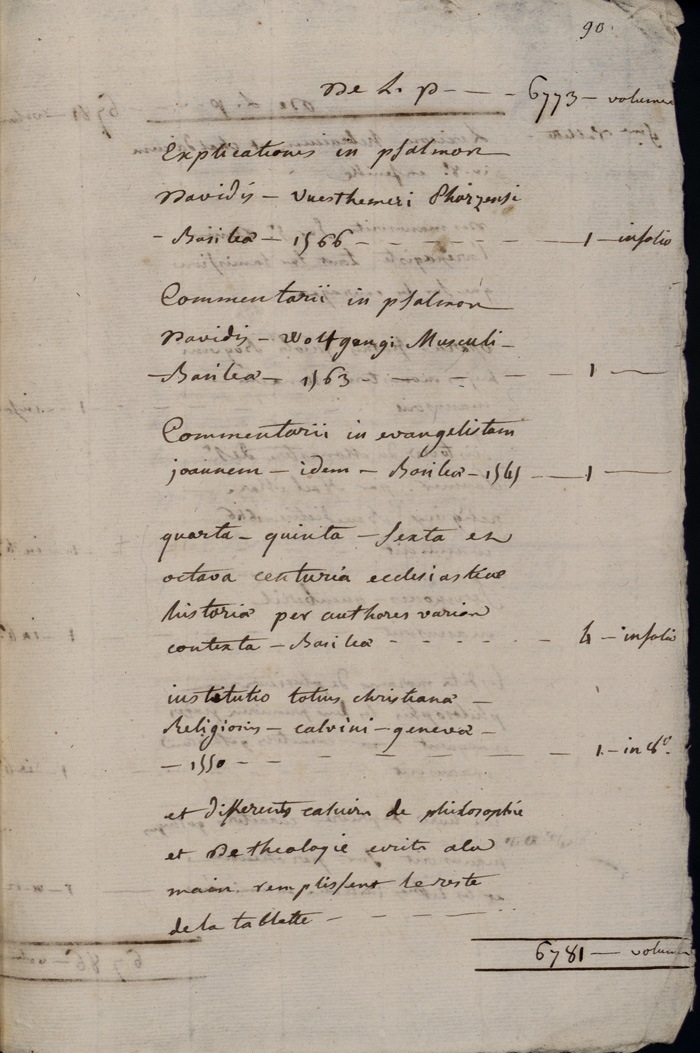 90
De L. p - - - 6773 - volumes
Explicationes in psalmos
Davidis - Vuesthemeri Phorzensi
- Basileâ - 1566 - - - - - - 1 - infolio
Commentarii in psalmos
Davidis - Wolfgangi Musculi -
- Basileâ - 1563 - - - - - 1 -
Commentarii in evangelistam
joannem - idem - Basileâ - 1545 - 1 -
quarta - quinta - sexta et
octava centuria ecclesiasticae
historiâ per authores varios
contexta - Basileâ - - - - - 4 - infolio
institutio totius christianâ -
Religionis - calvini - geneva -
- 1550 - - - - - - 1 - in 8°.
et differents cahiers de philosophie
et De theologie ecrits a la
main remplissent le reste
de la tablette - - - -
6781 - volumes